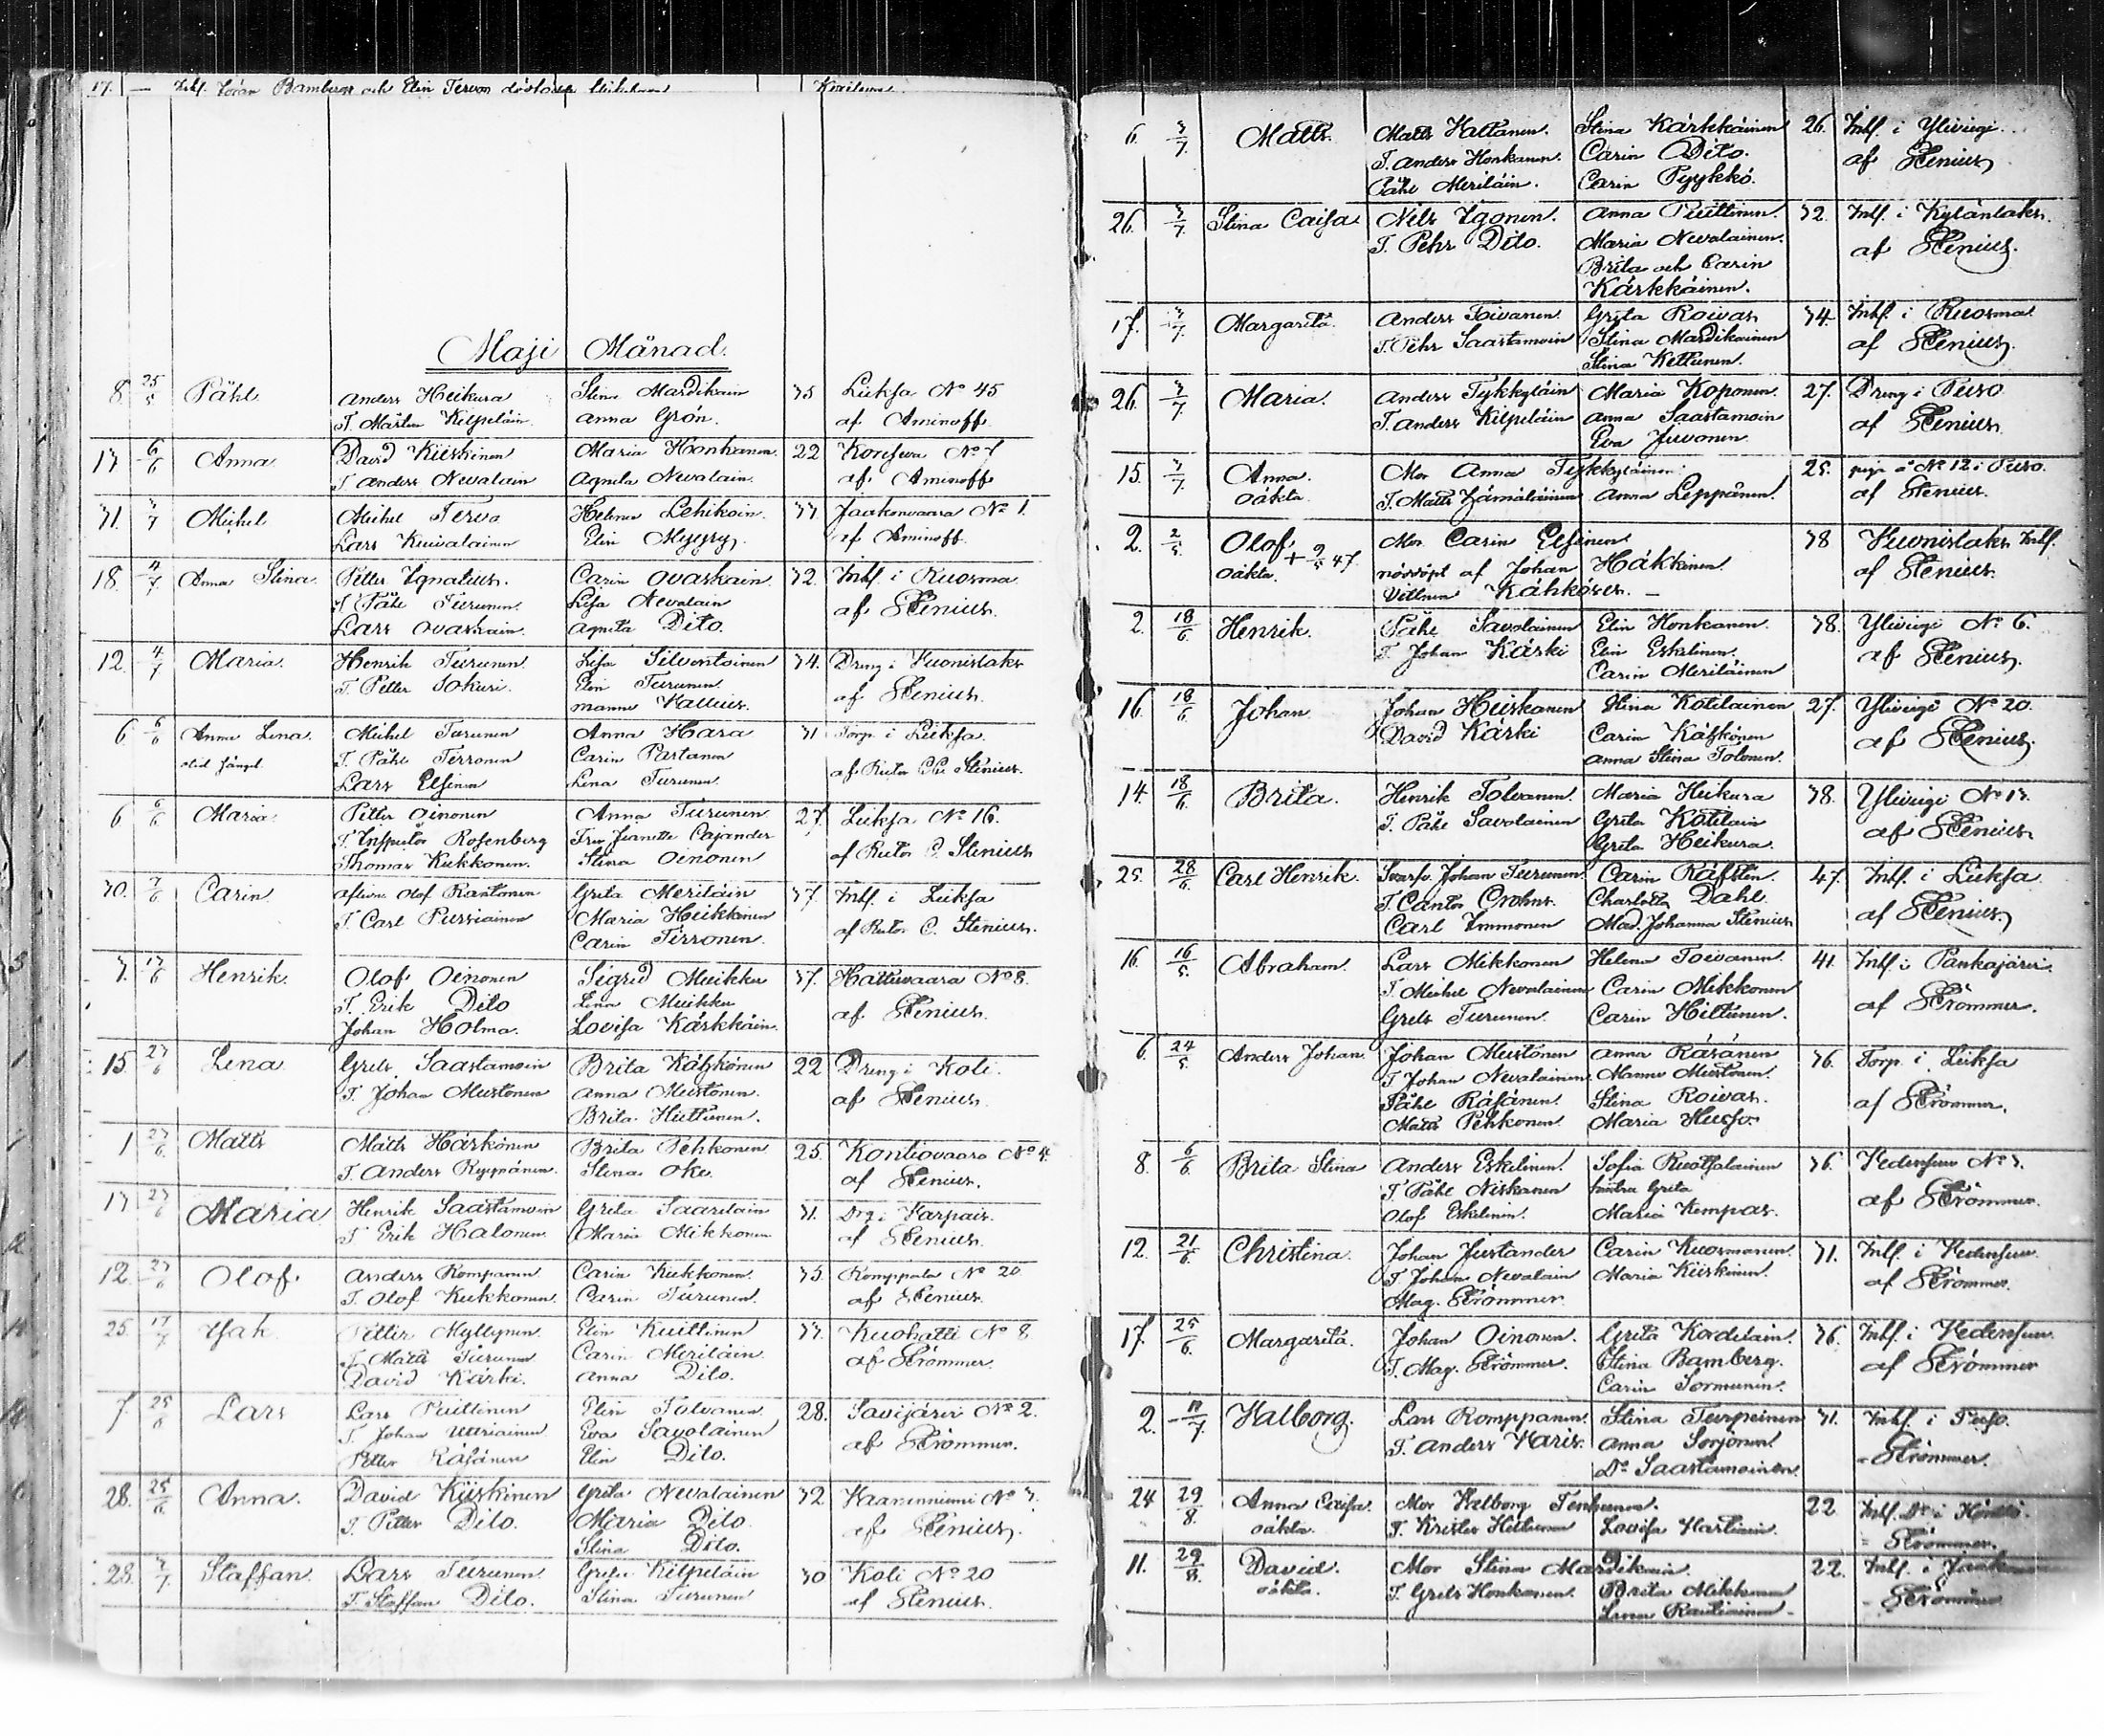 17. — Inh. Göran Bamberg och Elin Tervos dödfödde flickebarn
Maji Månad.
8 25/5 Påhl Anders Heikura Stina Mardikain 35 Lieksa No 45
T. Mårten Kilpeläin Anna Grön. af Aminoff
13 6/6 Anna David Kiiskinen Maria Honkanen 22
T Anders Nevalain Agneta Nevalain. af Aminoff
31. 3/7 Michel Michel Tervo Helena Lehikoin. 33 Jaakonvaara No 1.
Lars Kuivalainen Elin Myyry. af Aminoff
18. 4/7 Anna Stina Petter Ignatius. Carin Ovaskain. 32. Inh. i Ruosma
T Påhl Turunen. Lisa Nevalain af Stenius.
Lars Ovaskain. Agneta Dito.
12. 4/7 Maria. Henrik Turunen. Lisa Silventoinen 34. Dreng i Vuonislaks
T. Petter Sokuri. Elin Turunen. af Stenius.
Manne Vallius.
6 6/6 Anna Lena. Michel Turunen Anna Hara 31 Torp. i Lieksa
T. Påhl Tirronen Carin Partanen af Rector Stenius.
Lars Elfinen Lena Turunen.
6 6/6 Maria Petter Oinonen Anna Turunen 27. Lieksa No 16.
T. Inspector Rosenberg Fru Jeanette Cajander af Rector C. Stenius
Thomas Kukkonen. Stina Oinonen
30. 7/6 Carin Olof Rantonen Greta Meriläin 37. Inh. i Lieksa
T Carl Pussiainen Maria Heikkinen af Rector C. Stenius.
Carin Tirronen.
3. 13/6 Henrik. Olof Oinonen Sigrid Muikku 37. Hattuvaara No 8.
T. Erik Dito Lena Muikku af Stenius.
Johan Holma. Lovisa Kärkkäin.
15 27/6 Lena Grels Saastamoin Brita Kähkönen 22 Dreng i Koli.
T. Johan Mustonen Anna Mustonen af Stenius.
Brita Huttunen.
1 27/6 Matts Matts Härkönen Brita Pehkonen 25. Kontiovaara No 4.
T. Anders Ryynänen. Stina Oke. af Stenius.
13 27/6 Maria Henrik Saastamoin Greta Saarelain 31. Drg i Varpais.
T Erik Halonen. Maria Mikkonen af Stenius.
12. 27/6 Olof. Anders Romppanen Carin Kukkonen. 35. Romppala No 20
T. Olof Kukkonen. Carin Turunen. af Stenius.
25. 17/7 Isak Petter Myllynen. Elin Kuittinen 33. Kuohatti No 8
T. Matts Turunen Carin Meriläin. af Strömmer.
David Kärki. Anna Dito.
7. 25/6 Lars Lars Puittinen Elin Tolvanen. 28. Savijärvi No 2.
T. Johan Uitriainen Eva Savolainen af Strömmer.
Petter Räsänen Elin Dito.
28. 25/6 Anna. David Kiiskinen Greta Nevalainen 32. Vaaranniemi No 3.
T. Petter Dito. Maria Dito af Stenius.
Stina Dito.
28. 3/7 Staffan. Lars Turunen Greta Kilpeläin 30 Koli No 20
T. Staffan Dito. Stina Turunen af Stenius.
6. 3/7 Matts. Matts Hattunen. Stina Kärkkäinen 26. Inh. i Ylivieji.
T. Anders Honkanen. Carin Dito. af Stenius
Påhl Meriläin. Carin Pyykkö.
26. 3/7 Stina Caisa Nils Igonen. Anna Puittinen. 32. Inh. i Kylänlaks.
T. Pehr Dito. Maria Nevalainen. af Stenius.
Brita och Carin
Kärkkäinen.
17. 3/7 Margareta. Anders Toivanen. Greta Roivas 34. Inh. i Ruosma
T. Pehr Saastamoin Stina Mardikainen af Stenius.
Stina Kettunen.
26. 3/7 Maria. Anders Tykkyläin Maria Koponen 27. Dreng i Puso
T. Anders Kilpeläin Anna Saastamoin af Stenius
Eva Juvonen.
15. 3/7 Anna. Mor Anna Tykkyläinen. 25. piga å No 12 i Puso.
oäkta T. Matts Hämäläinen Anna Leppänen. af Stenius.
2. 2/5 Olof. + 9/5 47. Mor Carin Elfinen 38 Vuonislaks Inh.
oäkta. nöddöpt af Johan Häkkinen. af Stenius.
Vittnen Kähköses. —
2. 18/6 Henrik. Påhl Savolainen Elin Honkanen. 38. Ylivieji No 6.
T Johan Kärki Elin Eskelinen. af Stenius.
Carin Meriläinen
16. 18/6 Johan Johan Heiskanen Stina Kotilainen 27. Ylivieji No 20.
David Kärki Carin Kähkönen af Stenius.
Anna Stina Tolonen.
14. 18/6 Brita. Henrik Tolvanen. Maria Heikura 38. Ylivieji No 13.
T. Påhl Savolainen Greta Kotilain af Stenius
Greta Heikura.
25. 28/6 Carl Henrik. Svarfv. Johan Turunen. Carin Räfsten. 47. Inh. i Lieksa
T. Cantor Crohns. Charlotta Dahl. af Stenius.
Carl Immonen Mad. Johanna Stenius
16. 16/5 Abraham. Lars Mikkonen Helena Toivanen. 41. Inh. i Pankajärvi.
T. Michel Nevalainen Carin Mikkonen af Strömmer.
Grels Turunen. Carin Hiltunen.
6. 24/5 Anders Johan. Johan Mustonen Anna Räsänen 36. Torp. i Lieksa
T Johan Nevalainen Manne Mustonen. af Strömmer.
Påhl Räsänen. Stina Roivas.
Matts Pehkonen. Maria Husso.
8. 6/6 Brita Stina Anders Eskelinen. Sofia Ruotsalainen 36. Vedensuu No 3.
T Påhl Niskanen hustru Greta af Strömmer.
Olof Eskelinen. Maria Kempas.
12. 21/6 Christina. Johan Justander Carin Kuosmanen. 31. Inh. i Vedensuu.
T Johan Nevalain Maria Kiiskinen. af Strömmer.
Mag. Strömmer.
17. 25/6 Margareta. Johan Oinonen. Greta Kordelain. 36. Inh. i Vedensuu.
T. Mag. Strömmer. Stina Bamberg. af Strömmer
Carin Sormunen.
2. 11/7 Valborg. Lars Romppanen. Stina Turpeinen 31. Inh. i Puso.
T. Anders Varis. Anna Sorjonen. - Strömmer.
Do Saastamoinen
24 29/8. Anna Caisa. Mor Valborg Tenhunen. 22.
oäkta. T. Krister Hiltunen Lovisa Martiain. - Strömmer.
11. 29/8. David. Mor Stina Mardikain. 22. Inh. i
oäkta. T. Grels Honkanen. Brita Mikkonen - Strömmer
Lena Rautiainen -